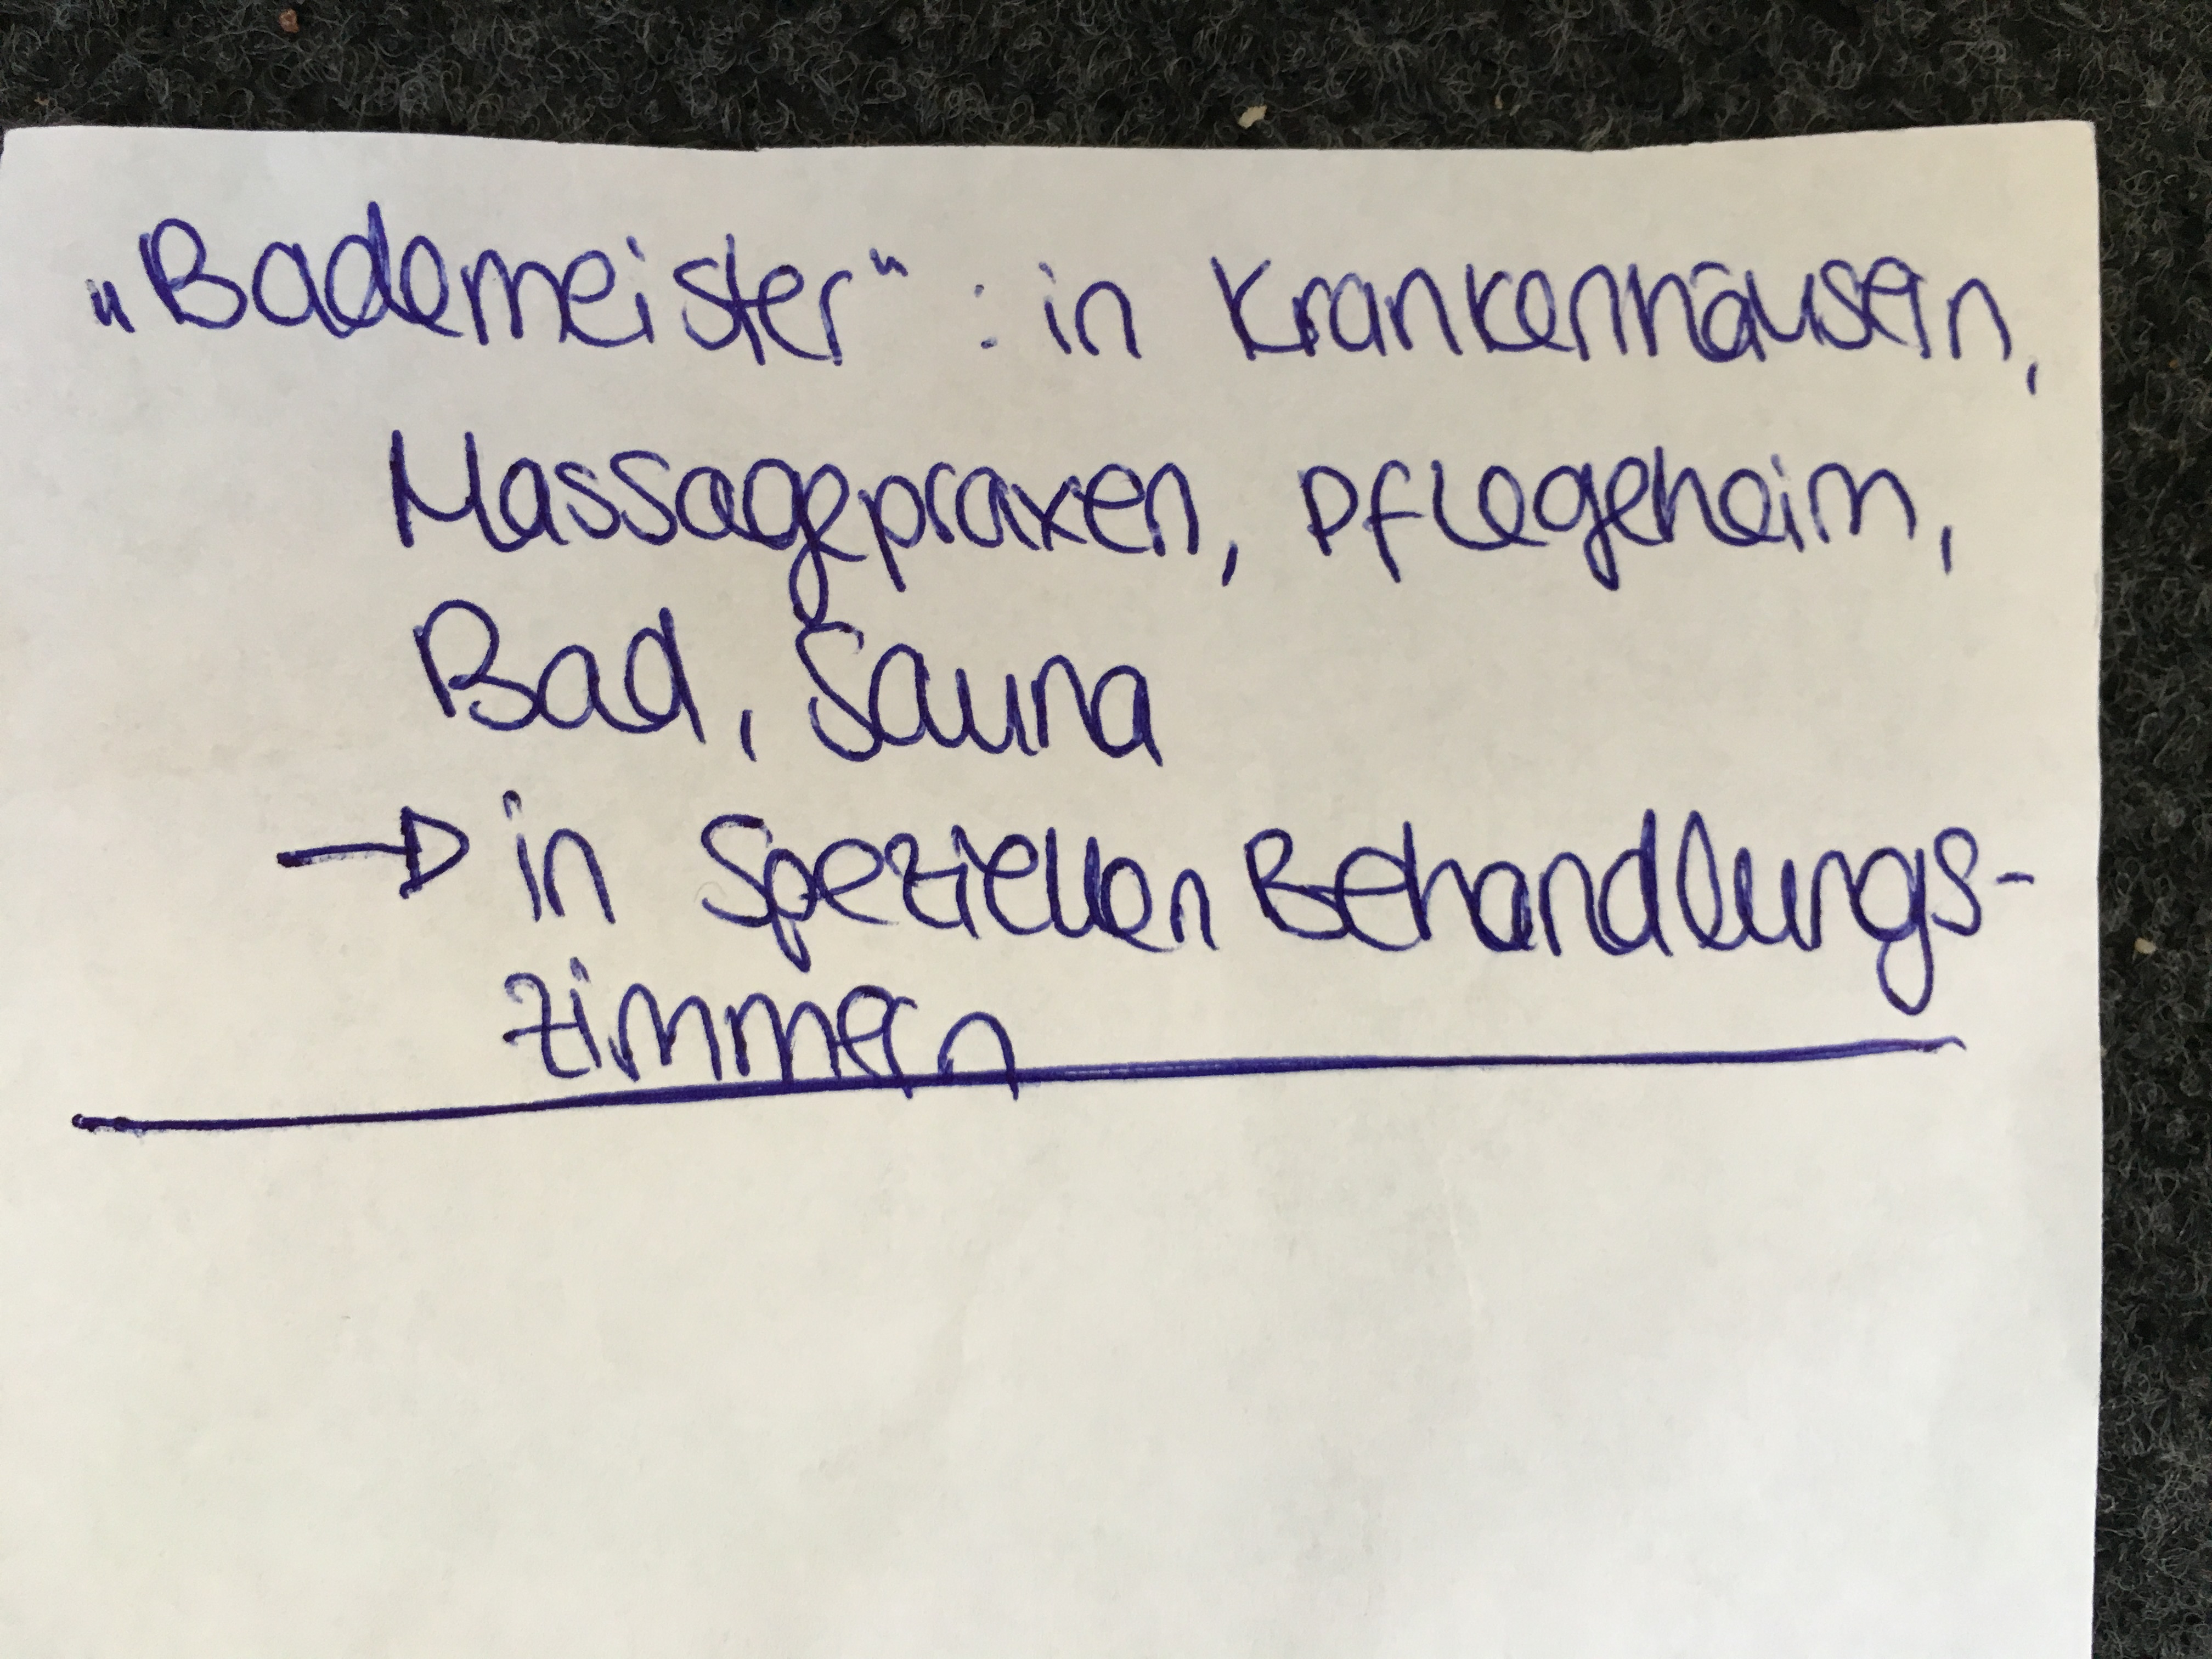 „Bademeister“: in Krankennhäusern,
Massagepraxen, Pflegeheim,
Bad, Sauna
→ in Speziellen Behandlungs-
zimmern